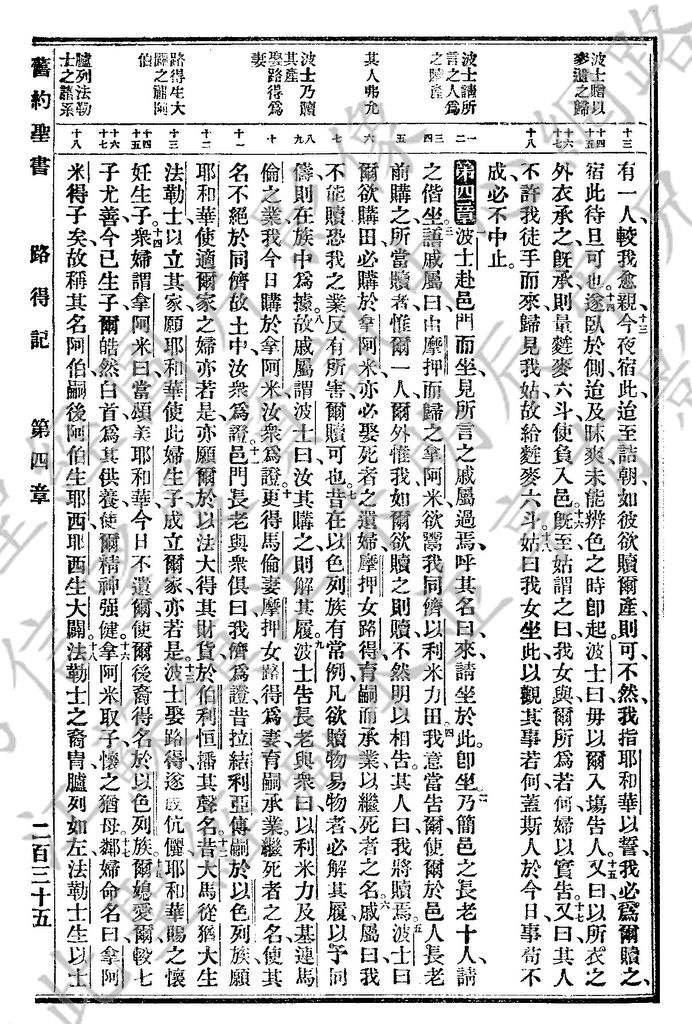 舊約聖書　路得記　第四章　二百三十五
波士贈以
麥遺之歸
波士請所
言之人為
之贖產
其人弗允
波士乃贖
其產
娶路得為
妻
路得生大
闢之祖阿
伯
臚列法勒
士之譜系
有一人較我愈親今夜宿此迨至詰朝如彼欲贖爾產則可不然我指耶和華以誓我必為爾贖之
宿此待旦可也遂臥於側迨及昧爽未能辨色之時卽起波士曰毋以爾入塲告人又曰以所衣之
外衣承之旣承則量麰麥六斗使負入邑旣至姑謂之曰我女與爾所為若何婦以實告又曰其人
不許我徒手而來歸見我姑故給麰麥六斗姑曰我女坐此以觀其事若何蓋斯人於今日事苟不
成必不中止
第四章波士赴邑門而坐見所言之戚屬過焉呼其名曰來請坐於此卽坐乃簡邑之長老十人請
之偕坐語戚屬曰由摩押而歸之拿阿米欲鬻我同儕以利米力田我意當告爾使爾於邑人長老
前購之所當贖者惟爾一人爾外惟我如爾欲贖之則贖不然明以相告其人曰我將贖焉波士曰
爾欲購田必購於拿阿米亦必娶死者之遺婦摩押女路得育嗣而承業以繼死者之名戚屬曰我
不能贖恐我之業反有所害爾贖可也昔在以色列族有常例凡欲贖物易物者必解其履以予同
儔則在族中為據故戚屬謂波士曰汝其購之則解其履波士告長老與衆曰以利米力及基連馬
倫之業我今日購於拿阿米汝衆為證更得馬倫妻摩押女路得為妻育嗣承業繼死者之名使其
名不絕於同儕故土中汝衆為證邑門長老與衆俱曰我儕為證昔拉結利亞傳嗣於以色列族願
耶和華使適爾家之婦亦若是亦願爾於以法大得其財貨於伯利恒播其聲名昔大馬從猶大生
法勒士以立其家願耶和華使此婦生子成立爾家亦若是波士娶路得遂成伉儷耶和華賜之懷
妊生子衆婦謂拿阿米曰當頌美耶和華今日不遺爾使爾後裔得名於以色列族爾媳愛爾較七
子尤善今已生子爾皓然白首為其供養使爾精神强健拿阿米取子懷之猶母鄰婦命名曰拿阿
米得子矣故稱其名阿伯嗣後阿伯生耶西耶西生大闢法勒士之裔胄臚列如左法勒士生以士